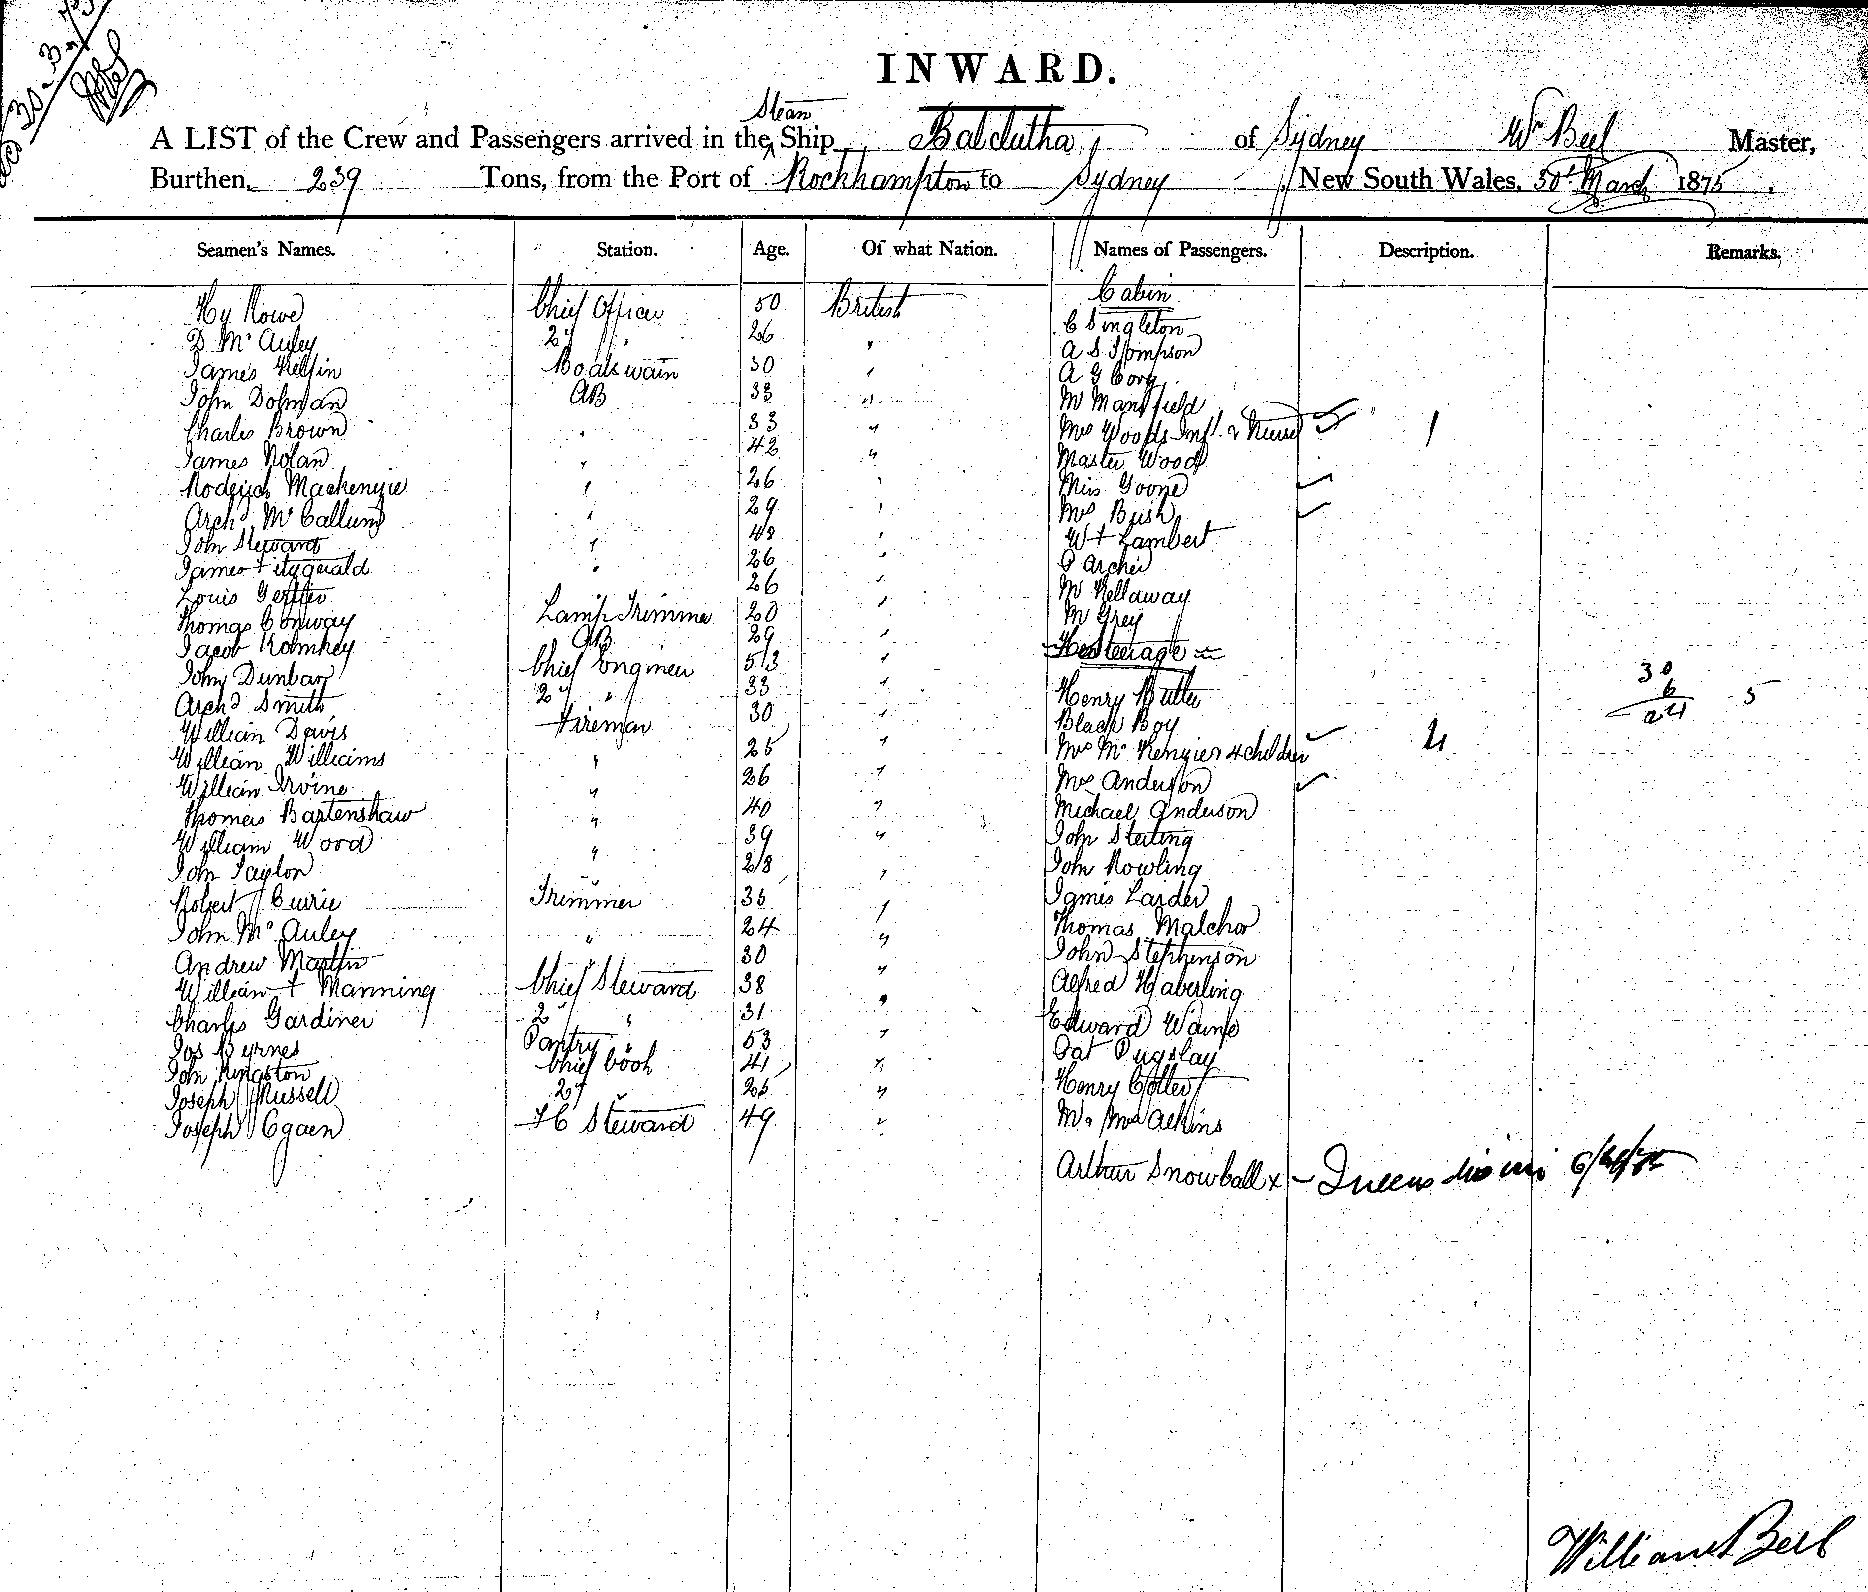 30-3-75
INWARD.
Steam
A LIST of the Crew and Passengers arrived in the Ship Balclutha, of Sydney Wm Beel Master,
Burthen, 239 Tons, from the Port of Rockhampton to Sydney New South Wales, 30th March 1875.
Seamen's Names. Station. Age. Of what Nation. Names of Passengers. Description. Remarks.
Cabin
Hy Rowe Chief Officer 50 British C Singleton
D McAuley 2d " 26 " A S Thompson
James Boatswain 30 " A G
John Dolman AB 33 " Mr Mansfield
Charles Brown " 33 " Mrs Woods Inft. & Nurse 1
James Nolan " 42 " Master Wood
Roderick Mackenzie " 26 " Miss
Archd McCallum " 29 " Mrs Bush
John Steward " 48 " W F Lambert
James Fitzgerald " 26 " Archer
Louis " 26 " Mr Kellaway
Thomas Conway Lamp Trimmer 20 " Mr Grey
Jacob AB 29 " Steerage
John Dunbar Chief Engineer 53 " 30
Archd Smith 2d " 33 " Henry Butler 6
William Davis Fireman 30 " Black Boy 24 5
William Williams " 25 " Mrs McKenzie & 4 children 4
William Irvine " 26 " Mrs Anderson
Thomas Bartenshaw " 40 " Michael Anderson
William Wood " 39 " John Sterling
John Taylor " 28 " John Rowling
Robert Currie Trimmer 35 " James Larder
John McAuley " 24 " Thomas Malcho
Andrew Martin " 30 " John Stephenson
William F Manning Chief Steward 38 " Alfred Haberling
Charles Gardiner 2d " 31 " Edward
Jos Byrnes Pantry " 53 " Pat Pugslay
John Kingston Chief Cook 41 " Henry
Joseph Russell 2d " 25 " Mr & Mrs Atkins
Joseph Steward 49 "
Arthur Snowball x
William Beel